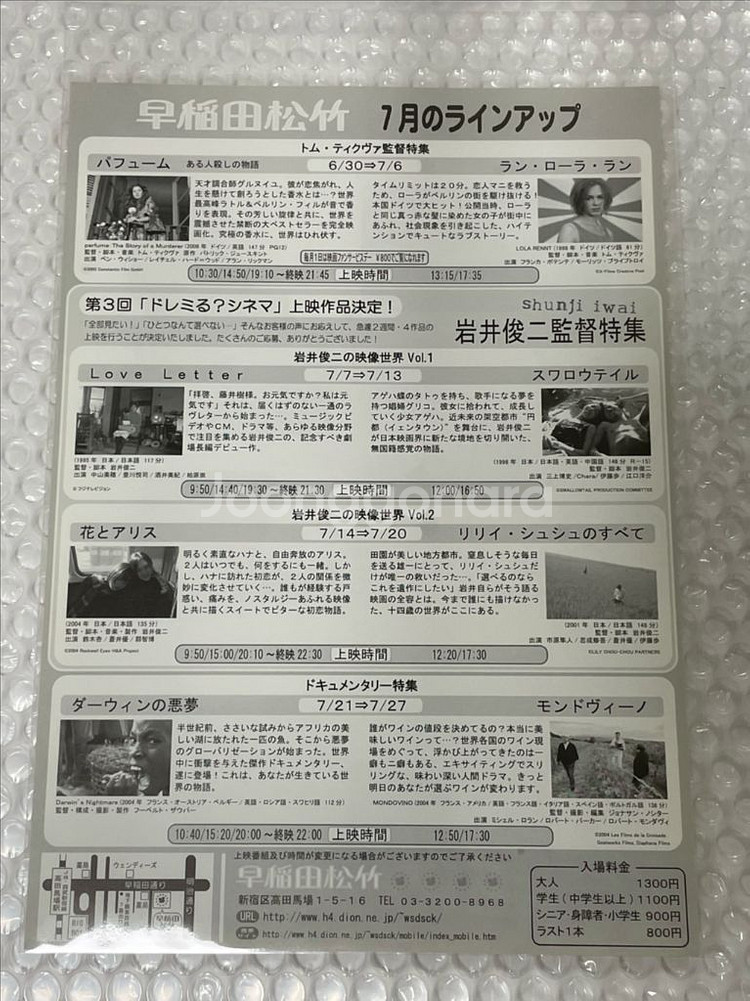 早稲田松竹 7月のラインアップ
トム・ティクヴァ監督特集
パフューム ある人殺しの物語
6/30⇒7/6
ラン・ローラ・ラン
天才調合師グルヌイユ。彼が恋焦がれ、人
生を懸けて創ろうとした香水とは…?世界
最高峰ラトル&ベルリン・フィルが音で香
りを表現。その芳しい旋律と共に、世界を
震撼させた禁断の大ベストセラーを完全映
画化。究極の香水に、世界はひれ伏す。
タイムリミットは20分。恋人マニを救う
ため、ローラがベルリンの街を駆け抜ける!
本国ドイツで大ヒット!公開当時、ローラ
と同じ真っ赤な髪に染めた女の子が街中に
あふれ、社会現象を引き起こした、ハイテ
ンションでキュートなラブストーリー。
perfume: The Story of a Murderer (2006年 ドイツ/英語 147分 PG12)
監督・脚本・音楽 トム・ティクヴァ 原作 パトリック・ジュースキント
出演 ベン・ウィショー/レイチェル・ハード=ウッド/アラン・リックマン
毎月1日は映画ファンサービスデー ¥800でご覧になれます
LOLA RENNT (1998年 ドイツ/ドイツ語 81分)
監督・脚本・音楽 トム・ティクヴァ
出演 フランカ・ポテンテ/モーリッツ・ブライプトロイ
10:30/14:50/19:10~終映21:45 上映時間 13:15/17:35
第3回「ドレミる?シネマ」上映作品決定!
「全部見たい!」「ひとつなんて選べない…」そんなお客様の声にお応えして、急遽2週間・4作品の
上映を行うことが決定いたしました。たくさんのご応募、ありがとうございました!
shunji iwai
岩井俊二監督特集
岩井俊二の映像世界 Vol.1
Love Letter
7/7⇒7/13
スワロウテイル
「拝啓、藤井樹様。お元気ですか?私は元
気です」それは、届くはずのない一通のラ
ブレターから始まった…。ミュージックビ
デオやCM、ドラマ等、あらゆる映像分野
で注目を集める岩井俊二の、記念すべき劇
場長編デビュー作。
アゲハ蝶のタトゥを持ち、歌手になる夢を
持つ娼婦グリコ。彼女に拾われて、成長し
ていく少女アゲハ。近未来の架空都市“円
都(イェンタウン)”を舞台に、岩井俊二
が日本映画界に新たな境地を切り開いた、
無国籍感覚の物語。
(1995年 日本/日本語 117分)
監督・脚本 岩井俊二
出演 中山美穂/豊川悦司/酒井美紀/柏原崇
©フジテレビジョン
(1996年 日本/日本語・英語・中国語 148分 R-15)
監督・脚本 岩井俊二
出演 三上博史/Chara/伊藤歩/江口洋介
©SWALLOWTAIL PRODUCTION COMMITTEE
9:50/14:40/19:30~終映21:30 上映時間 12:00/16:50
岩井俊二の映像世界 Vol.2
花とアリス
7/14⇒7/20
リリイ・シュシュのすべて
明るく素直なハナと、自由奔放のアリス。
2人はいつも、何をするにも一緒。しか
し、ハナに訪れた初恋が、2人の関係を微
妙に変化させていく…。誰もが経験する戸惑
い、痛みを、ノスタルジーあふれる映像
と共に描くスイートでビターな初恋物語。
田園が美しい地方都市。窒息しそうな毎日
を送る雄一にとって、リリイ・シュシュだ
けが唯一の救いだった…。「選べるのなら
これを遺作にしたい」岩井自らがそう語る
映画の全容とは。今まで誰にも描けなかっ
た、十四歳の世界がここにある。
(2004年 日本/日本語 135分)
監督・脚本・音楽・製作 岩井俊二
出演 鈴木杏/蒼井優/郭智博
©2004 Rockwell Eyes・H&A Project
(2001年 日本/日本語 146分)
監督・脚本 岩井俊二
出演 市原隼人/忍成修吾/蒼井優/伊藤歩
©LILY CHOU-CHOU PARTNERS
9:50/15:00/20:10~終映22:30 上映時間 12:20/17:30
ドキュメンタリー特集
ダーウィンの悪夢
7/21⇒7/27
モンドヴィーノ
半世紀前、ささいな試みからアフリカの美
しい湖に放たれた一匹の魚。そこから悪夢
のグローバリゼーションが始まった。世界
中に衝撃を与えた傑作ドキュメンタリー、
遂に登場!これは、あなたが生きている世
界の物語。
誰がワインの値段を決めてるの?本当に美
味しいワインって…?世界各国のワイン現
場をめぐって、浮かび上がってきたのは一
癖も二癖もある、エキサイティングでスリ
リングな、味わい深い人間ドラマ。きっと
明日のあなたが選ぶワインが変わります。
Darwin's Nightmare (2004年 フランス・オーストリア・ベルギー/英語・ロシア語・スワヒリ語 112分)
監督・構成・撮影・製作 フーベルト・ザウパー
MONDOVINO (2004年 フランス・アメリカ/英語・フランス語・イタリア語・スペイン語・ポルトガル語 136分)
監督・撮影・編集 ジョナサン・ノシター
出演 ミシェル・ロラン/ロバート・パーカー/ロバート・モンダヴィ
10:40/15:20/20:00~終映22:00 上映時間 12:50/17:30
上映番組及び時間が変更になる場合がございますのでご了承ください
早稲田松竹
新宿区高田馬場1-5-16 TEL 03-3200-8968
URL http://www.h4.dion.ne.jp/~wsdsck/
http://www.h4.dion.ne.jp/~wsdsck/mobile/index_mobile.htm
ウェンディーズ
早稲田通り
明治通り
高田馬場駅
入場料金
大人 1300円
学生(中学生以上) 1100円
シニア・身障者・小学生 900円
ラスト1本 800円